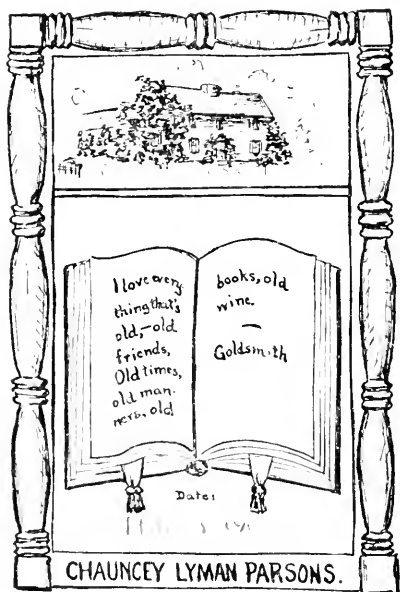 I love every
thing that's
old,—old
friends,
Old times,
old man-
ners, old
books, old
wine.
—
Goldsmith
Date:
CHAUNCEY LYMAN PARSONS.